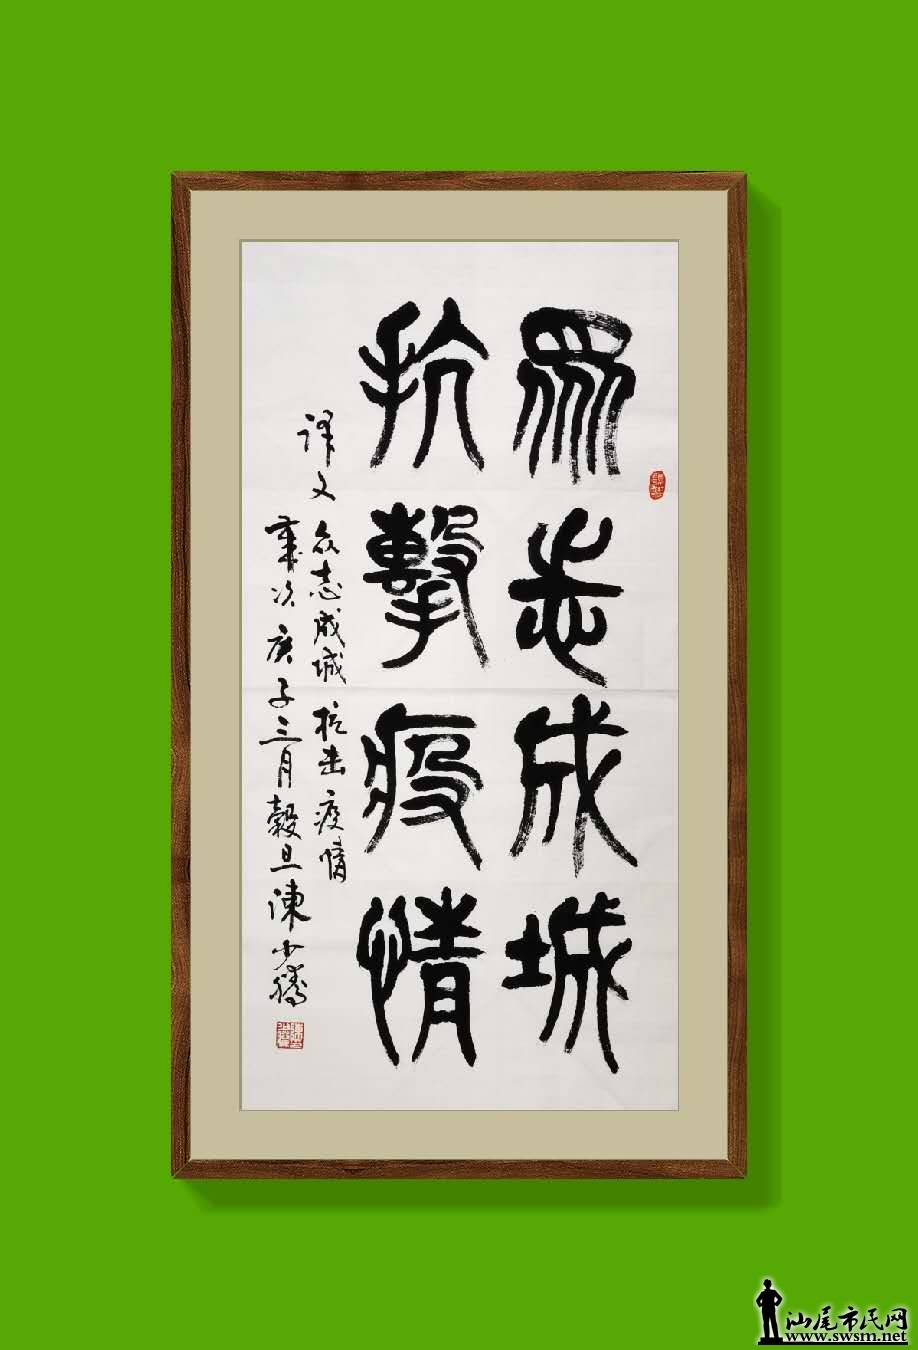 眾志成城
抗擊疫情
译文 众志成城 抗击疫情
歲次庚子三月榖旦陳少騰
汕尾市民网
www.swsm.net